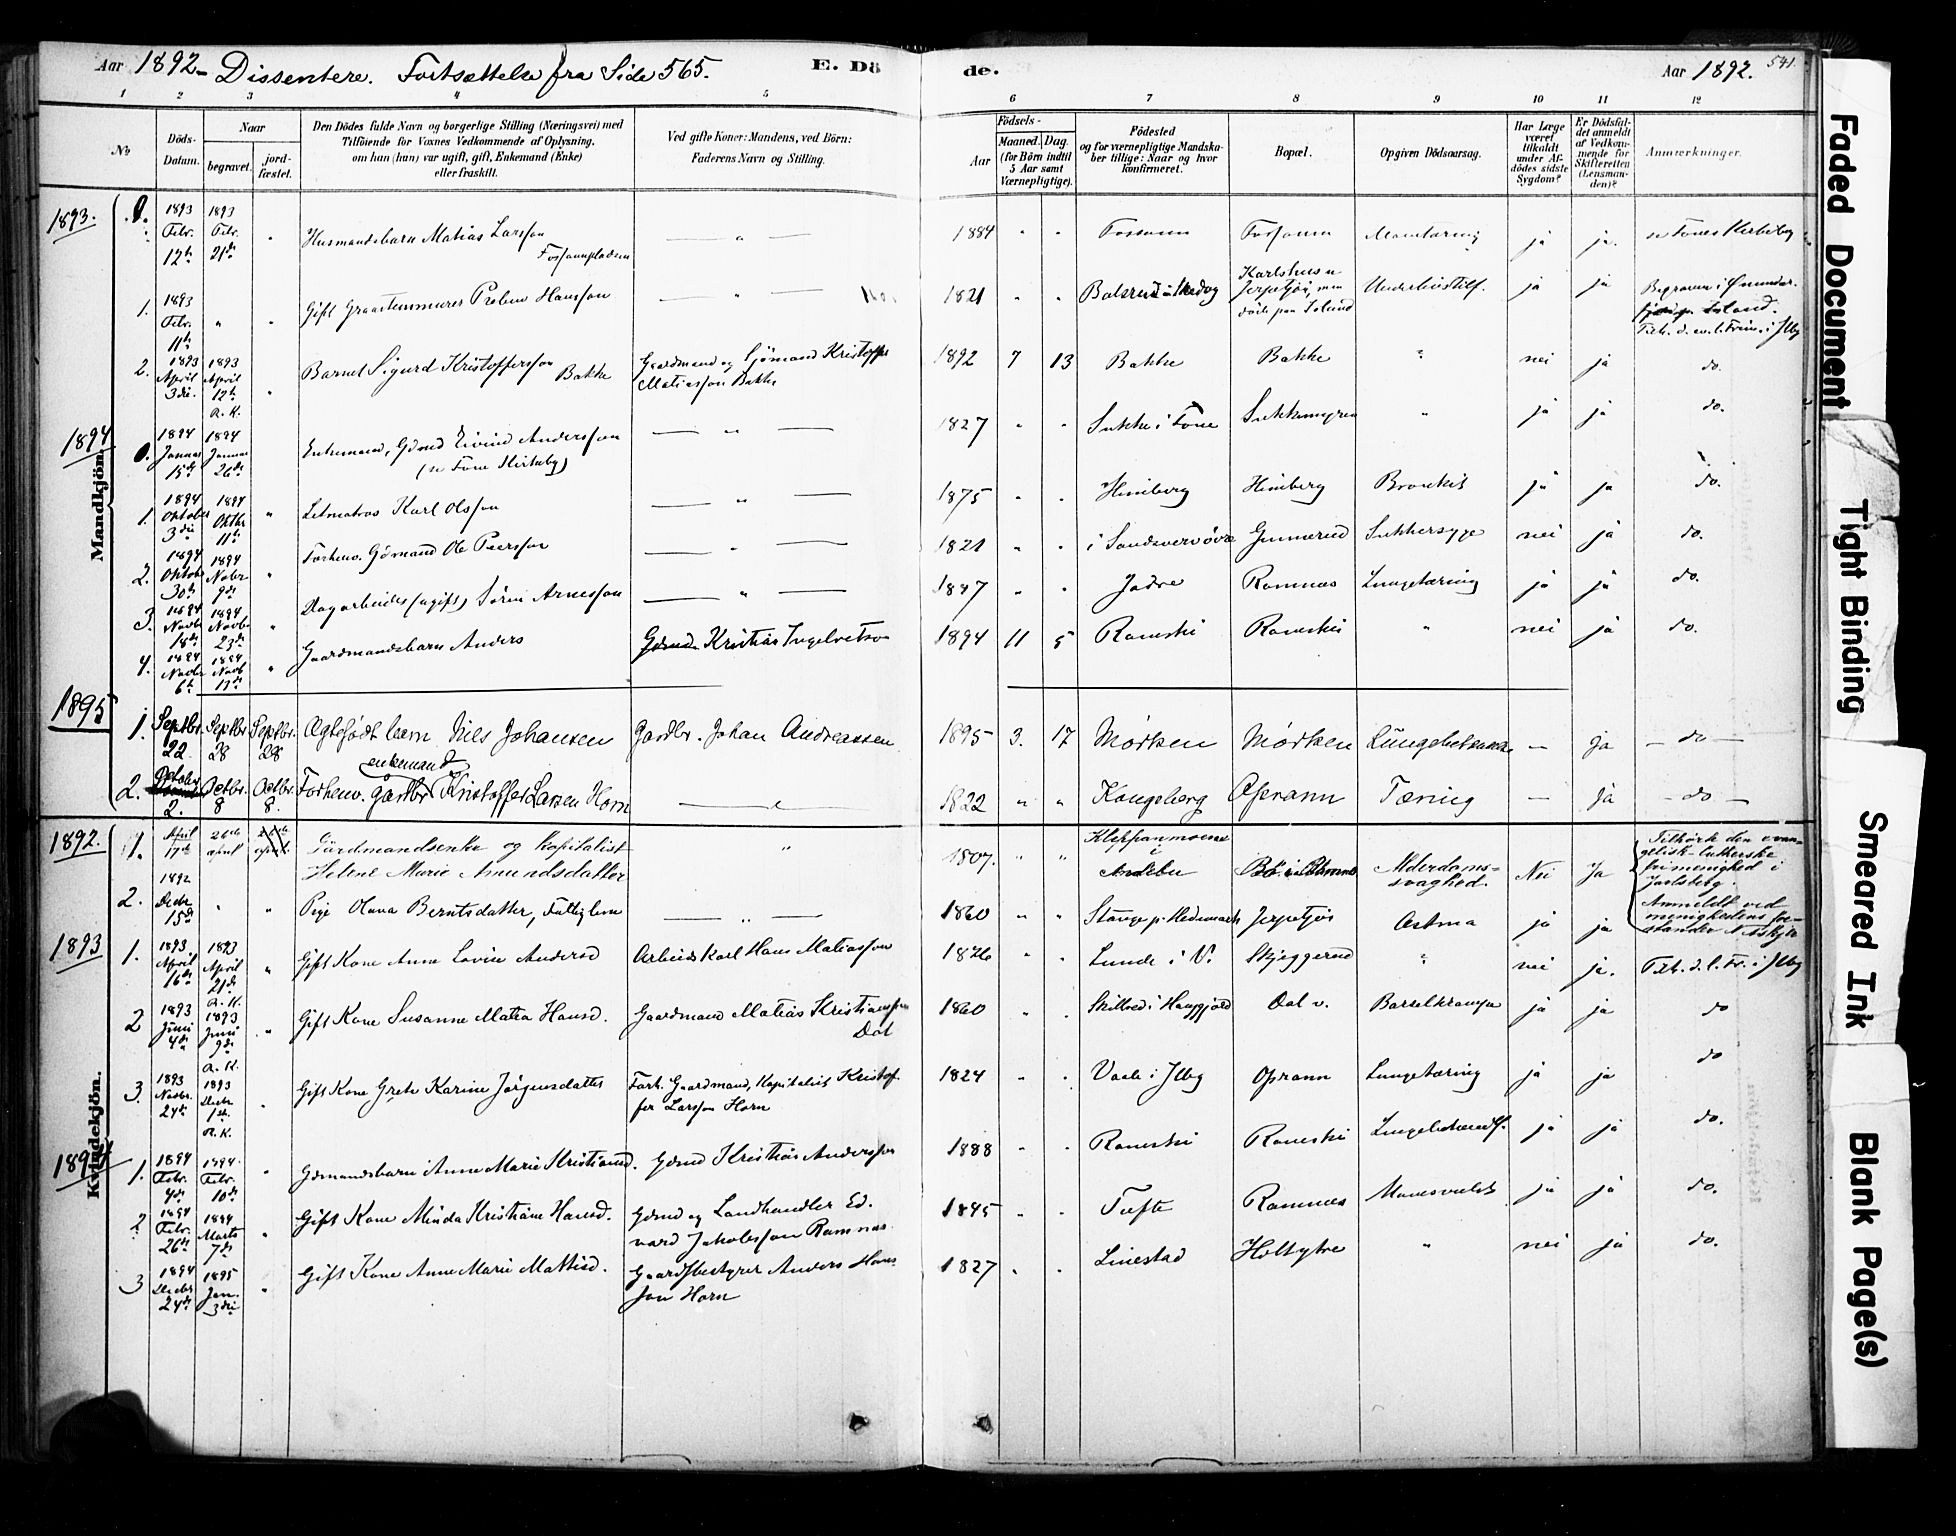 Aar 1892 - Dissentere. Fortsættelse fra Side 565.
E. Dö
de.
Aar 1892.
541.
1 2 3 4 5 6 7 8 9 10 11 12
No
Döds-Datum.
Naar
begravet.
jordfæstet.
Den Dödes fulde Navn og borgerlige Stilling (Næringsvei) med
Tilföiende for Voxnes Vedkommende af Oplysning,
om han (hun) var ugift, gift, Enkemand (Enke)
eller fraskilt.
Ved gifte Koner: Mandens, ved Börn:
Faderens Navn og Stilling.
Födsels-
Aar
Maaned. Dag.
(for Börn indtil
5 Aar samt
Værnepligtige).
Födested
og for værnepligtige Mandska-
ber tillige: Naar og hvor
konfirmeret.
Bopæl.
Opgiven Dödsaarsag.
Har Læge
været
tilkaldt
under Af-
dödes sidste
Sygdom?
Er Dödsfal-
det anmeldt
af Vedkom-
mende for
Skifteretten
(Lensman-
den)?
Anmærkninger.
Mandkjön.
1893.
0. 1893 Febr. 12te 1893 Febr. 21de Husmandsbarn Matias Larsson
1884 ja ja.
1. 1893 Febr. 11te Gift Graastensmurer Preben Hansson
1821 Underlivstilf. ja ja
2. 1893 April 3die. 1893 April 12te R.K. Barnet Sigurd Kristoffersson Bakke Gaardmand og Sjömand Kristoffer Matiasson Bakke
1892 7 13 Bakke Bakke " nei ja do.
1894
0. 1894 Januar 15de 1894 Januar 26de Enkemand, Gdmd Eivind Andersson
1827 ja ja do.
1. 1894 Oktober 3die 1894 Oktbr 11te Letmatros Karl Olsson
1875 Himberg Himberg Bronkit ja ja do.
2. 1894 Oktobr 30te 1894 Novbr 9de Forhenv. Gdmand Ole Peersson
1821 Gunnerud Sukkersyge nei ja do.
3. 1894 Novbr 18de 1894 Novbr 23de Dagarbeider (ugift) Sören Arnesson
1847 Ramnæs Lungetæring ja ja do.
4. 1894 Novbr 6te 1894 Novb 17de Gaardmandsbarn Anders Gdmd. Kristian
1894 11 5 Raneski Raneski " nei ja do.
1895
1. Septbr. 22. Septbr. 28 Septbr. 28 Ægtefödt barn Nils Johansen Gardbr. Johan Andreassen
1895 3. 17 Mörken Mörken Lungebetændelse — ja — do —
2. October 2. Octbr. 8 Octbr. 8. enkemand Forhenv. gardbr. Kristoffer Larsen Horn
1822 " " Kongsberg Oprann Tæring — ja — do —
Kvindekjön.
1892.
1. April 17de 26de april Gårdmandsenke og Kapitalist Helene Marie Amundsdatter "
1807. " " i Andebu Alderdoms-svaghed. Nei Ja
Tilhörte den evan-
gelisk-lutherske
frimenighed i
Jarlsberg.
Anmeldt ved
menighedens for-
stander
2. 1892 Decbr 15de Pige Olava Berntsdatter, Fattiglem
1860 Stange p. Hedemark Astma ja ja
1893
1. 1893 April 16de 1893 April 21de R.K. Gift Kone Anne Lovise Andersd Arbeidskarl Hans Matiasson
1826 Lunde i V. Skjeggerud " nei ja.
2 1893 Juni 4de 1893 Juni 9de R.K. Gift Kone Susanne Matea Hansd. Gaardmand Matias Kristiansson Dal
1860 Dal v. Barselkrampe ja ja do
3. 1893 Novbr. 24de 1893 Decbr 1ste. R.K. Gift Kone Grete Karine Jörgensdatter Forh. Gaardmand, Kapitalist Kristof-
fer Larsson Horn
1824 Vaale i Jlbg Oprann Lungetæring ja ja do
1894
1. 1894 Febr. 4de 1894. Febr. 10de Gdmandsbarn Anne Marie Kristiansd. Gdmd Kristian Andersson
1888 Raneski Raneski ja ja do.
2 1894 Febr. 26de 1894 Marts 7de Gift Kone Minda Kristiane Hansd. Gdmd og Landhandler Ed-
vard Jakobsson Ramnæs
1845 Tufte Ramnæs ja ja do.
3 1894 Decbr 24de 1895 Jan. 3die Gift Kone Anne Marie Mattisd. Gaardsbestyrer Anders Hans-
son Horn
1827 Linestad " nei ja do.
Faded Document
Tight Binding
Smeared Ink
Blank Page(s)